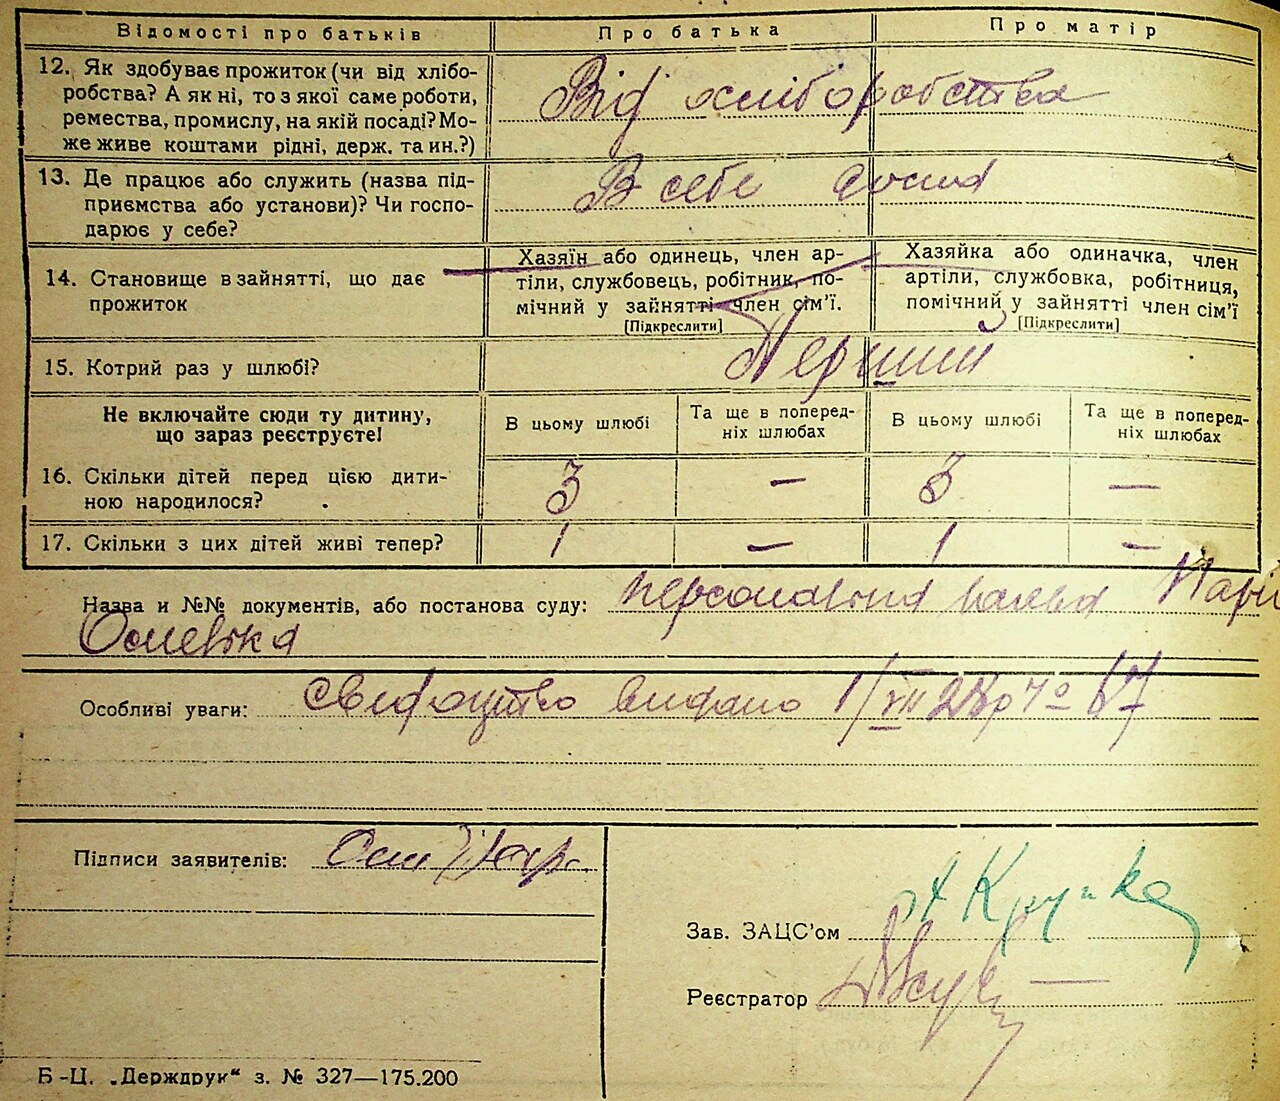 Відомості про батьків
Про батька
Про матір
12. Як здобуває прожиток (чи від хлібо-
робства? А як ні, то з якої саме роботи,
ремества, промислу, на якій посаді? Мо-
же живе коштами рідні, держ. та ин.?)
Від хліборобства
13. Де працює або служить (назва під-
приємства або установи)? Чи госпо-
дарює у себе?
В себе дома
14. Становище в зайнятті, що дає
прожиток
Хазяїн або одинець, член ар-
тіли, службовець, робітник, по-
мічний у зайнятті член сім'ї.
[Підкреслити]
Хазяйка або одиначка, член
артіли, службовка, робітниця,
помічний у зайнятті член сім'ї
[Підкреслити]
15. Котрий раз у шлюбі?
Перший
Не включайте сюди ту дитину,
що зараз реєструєте!
В цьому шлюбі
Та ще в поперед-
ніх шлюбах
В цьому шлюбі
Та ще в поперед-
ніх шлюбах
16. Скільки дітей перед цією дити-
ною народилося?
3 — 3 —
17. Скільки з цих дітей живі тепер?
1 — 1 —
Назва и №№ документів, або постанова суду: персональна заява
Особливі уваги: свидоцтво видано 1/VII 28р
Підписи заявителів:
Зав. ЗАЦС'ом
Реєстратор
Б-Ц. „Держдрук“ з. № 327—175.200